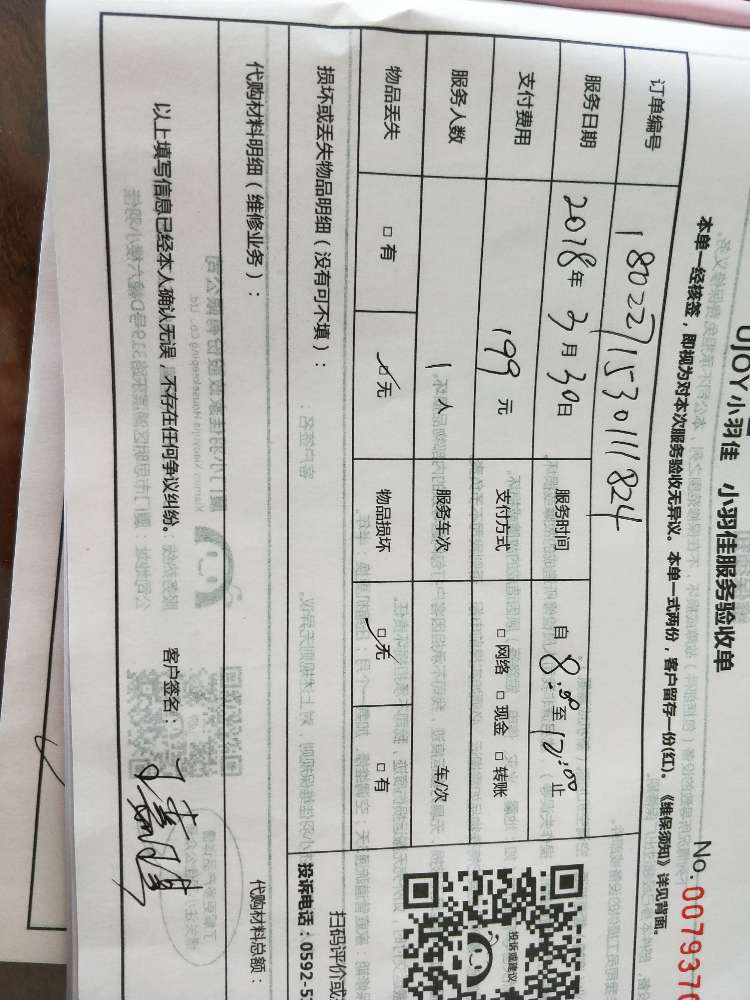 UJOY小羽佳 小羽佳服务验收单
No.0079376
本单一经核签，即视为对本次服务验收无异议。本单一式两份，客户留存一份(红)。《维保须知》详见背面。
订单编号 180227153011824
服务日期 2018年3月30日 服务时间 自8:00至12:00止
支付费用 199元 支付方式 □网络 □现金 □转账
服务人数 1人 服务车次 车/次
物品丢失 □有 □无 物品损坏 □无 □有
损坏或丢失物品明细（没有可不填）：
代购材料明细（维修业务）： 代购材料总额：
以上填写信息已经本人确认无误，不存在任何争议纠纷。 客户签名：
投诉或建议
扫码评价或
投诉电话：0592-5